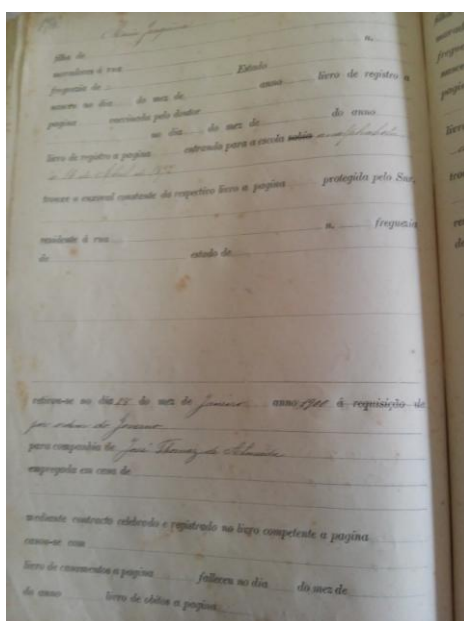 Maria Joaquina
filha de
moradora á rua n.
freguezia de Estado
nasceu no dia do mez de anno livro de registro a
pagina vaccinada pelo doutor
no dia do mez de do anno
livro de registro a pagina entrando para a escola sabia analphabeta
trouxe o enxoval constante do respectivo livro a pagina protegida pelo Snr.
residente á rua n. freguezia
de estado de
retirou-se no dia do mez de Janeiro anno 1900 á requisição de
por ordem do
para companhia de José Thomaz de Almeida
empregada em casa de
mediante contracto celebrado e registrado no livro competente a pagina
casou-se com
livro de casamentos a pagina falleceu no dia do mez de
do anno livro de obitos a pagina